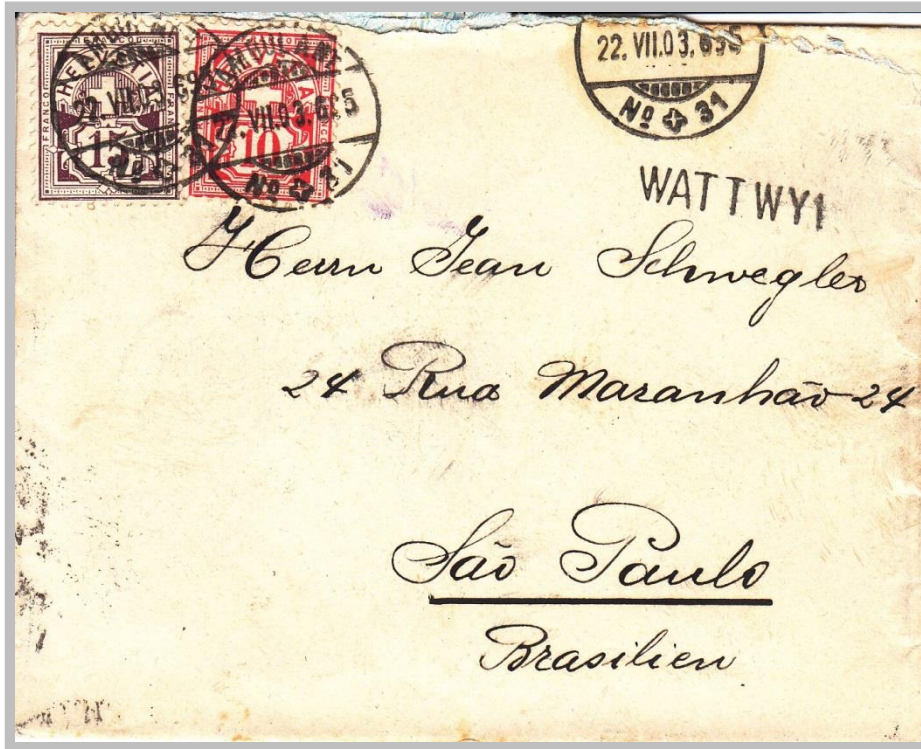 HELVETIA
FRANCO
FRANCO
15
22. VII.03.
10
22. VII.03.
No 31
22. VII.03.
No 31
WATTWY
Herrn Jean Schwegler
24 Rua Maranhão 24
São Paulo
Brasilien